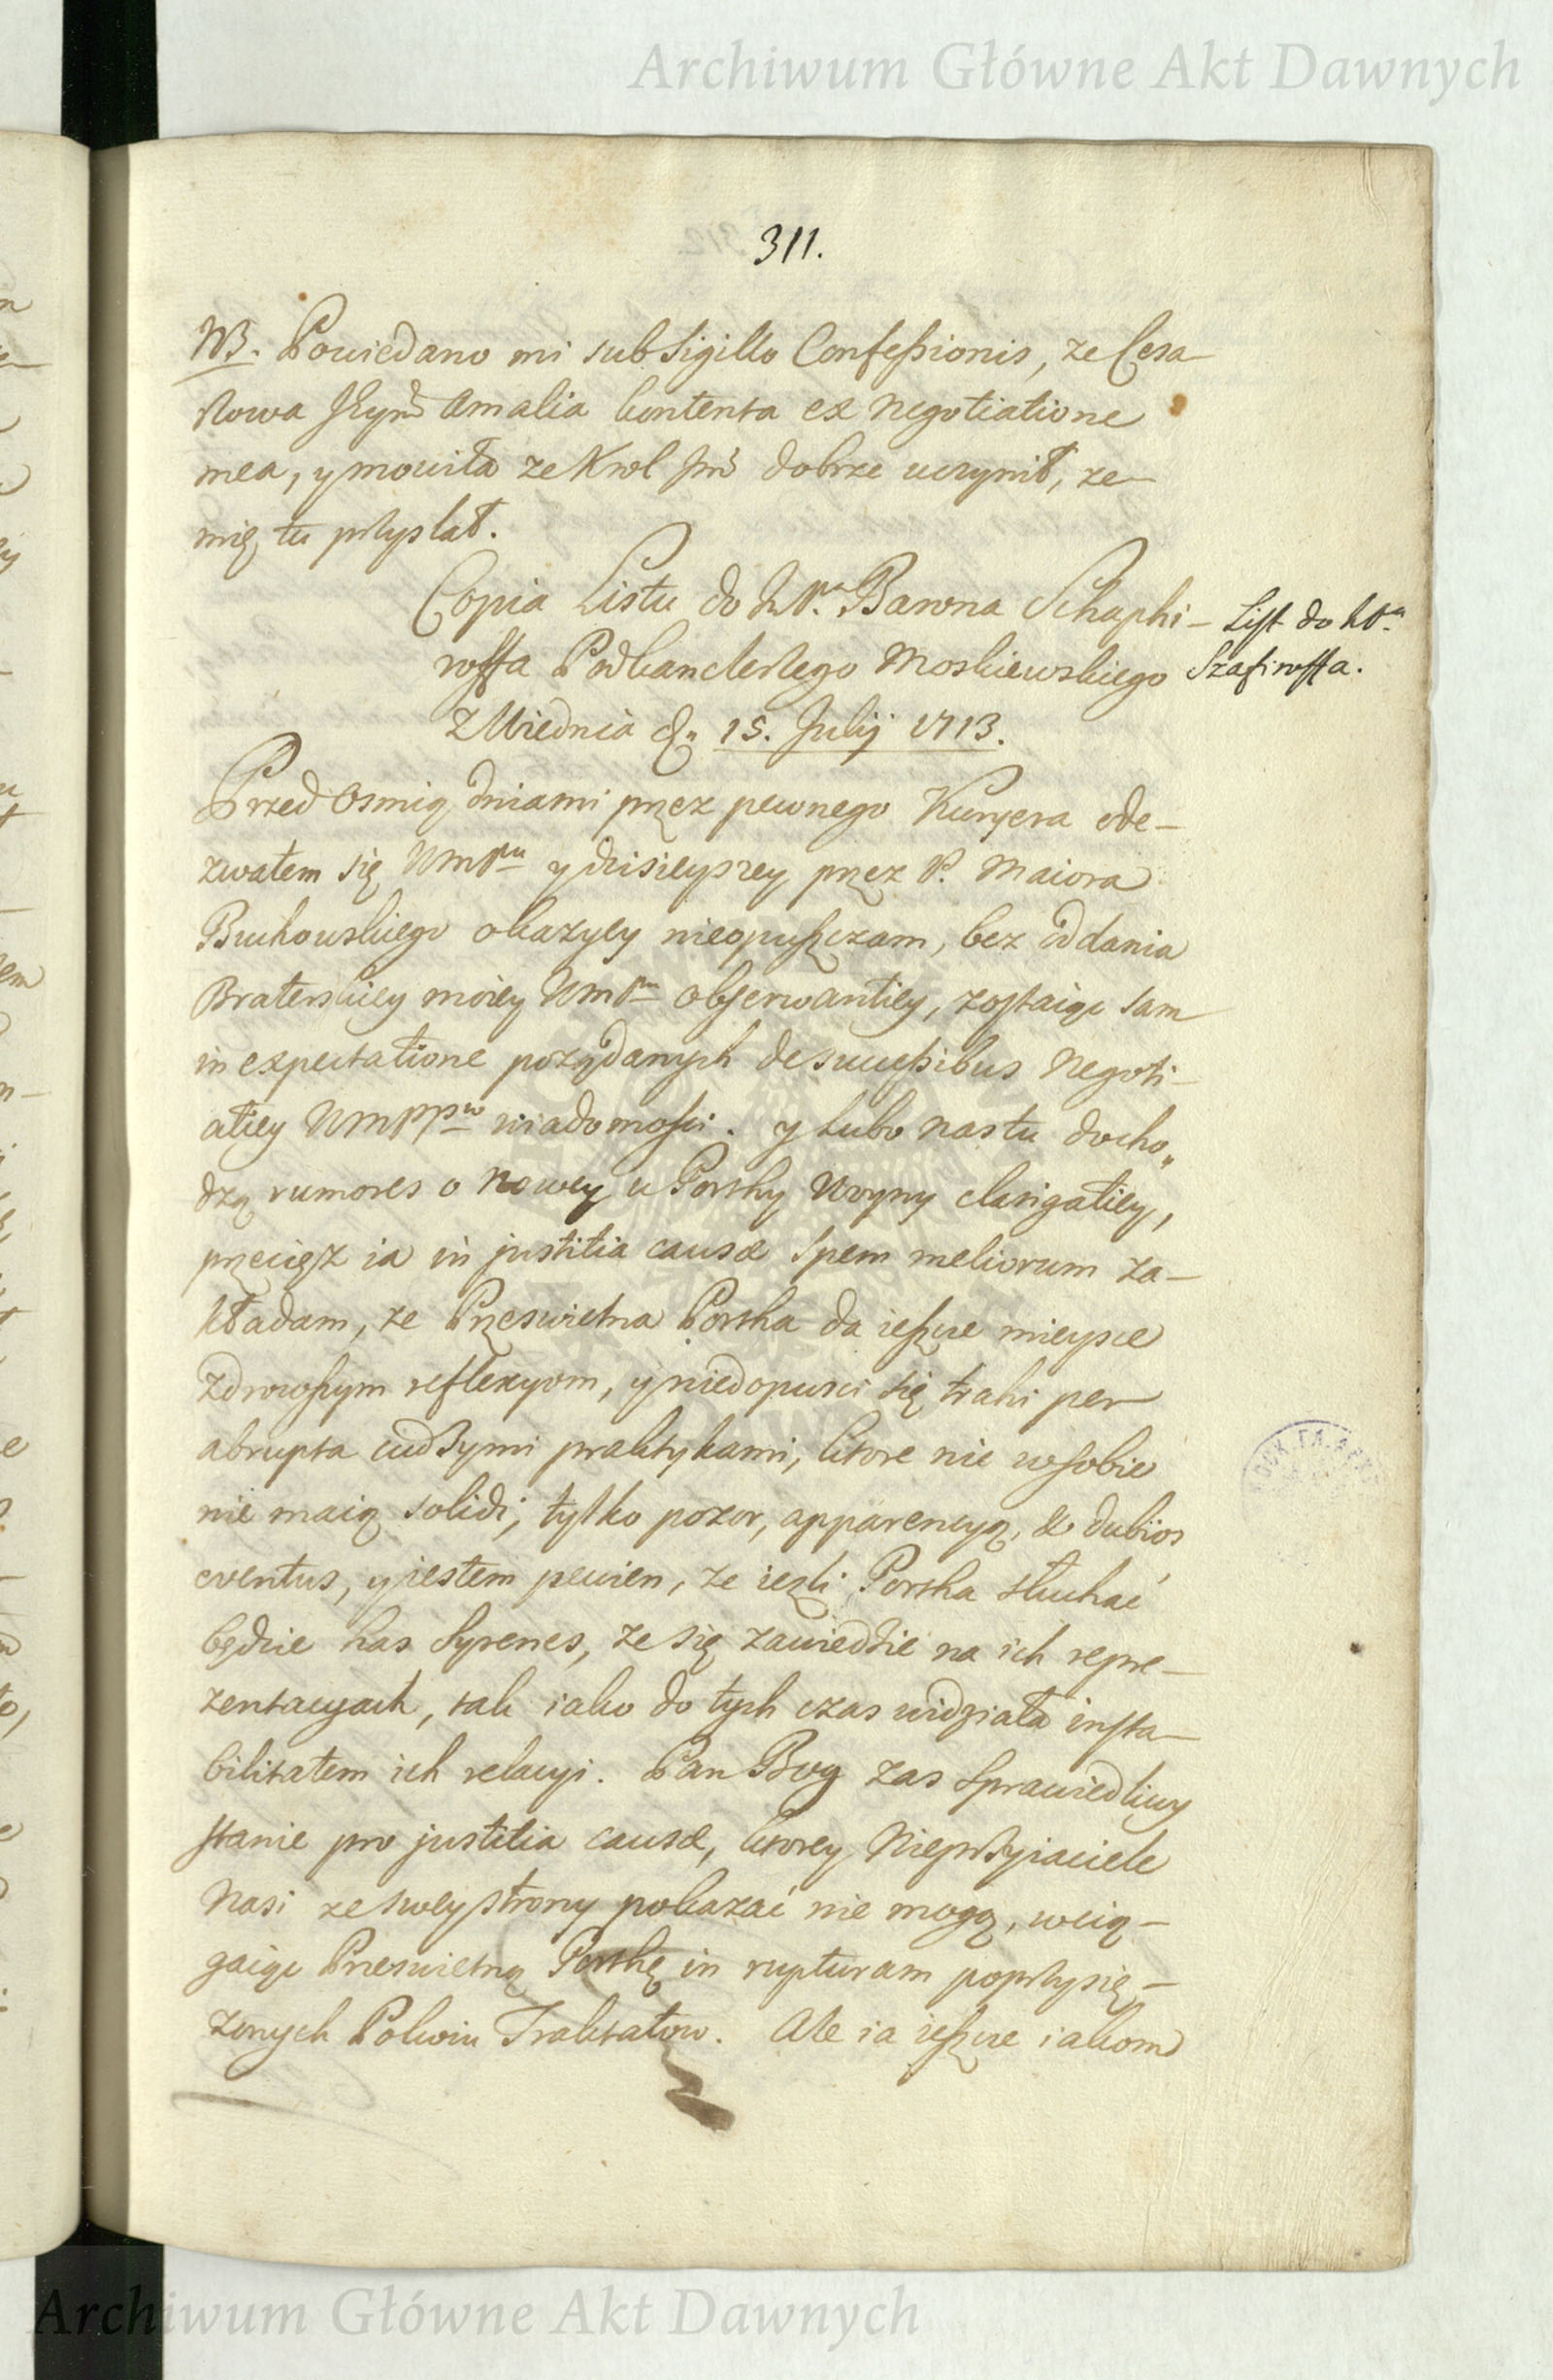 Archiwum Główne Akt Dawnych
311.
NB. Powiedano mi sub Sigillo Confessionis, ze Cesa-
rzowa Amalia kontenta ex negotiatione
mea, y mowiła ze Krol Jmć dobrze uczynił, ze
mię tu przysłał.
Copia Listu do Barona Schaphi-
roffa Podkanclerzego Moskiewskiego
z Wiednia d. 15. Julij 1713.
List do
Szafiroffa.
Przed osmią dniami przez pewnego Kuryera ode-
zwałem się WmPu y dzisieyszey przez P. Maiora
Buchowskiego okazyey nieopuszczam, bez oddania
Braterskiey moiey WmPu obserwantiey, zostaiąc sam
in expectatione poządanych de successibus Negoti-
atiey WmPPw wiadomosci. y lubo nas tu docho„
dzą rumores o nowey u Porthy Woyny clarigatiey,
przecięz ia in justitia causæ spem meliorum za-
kładam, ze Przeswietna Portha da ieszcze mieysce
zdrowszym reflexyom, y niedopusci się trahi per
abrupta cudzymi praktykami, ktore nic w sobie
nie maią solidi, tylko pozor, apparencyą, & dubios
eventus, y iestem pewien, ze iezli Portha słuchać
będzie has Syrenes, ze się zawiedzie na ich repre-
zentacyach, tak iako do tych czas widziała insta-
bilitatem ich relacyi. Pan Bog zas Sprawiedliwy
stanie pro justitia causæ, ktorey Nieprzyiaciele
Nasi ze swey strony pokazać nie mogą, wcią-
gaiąc Przeswietną Porthę in rupturam poprzysię-
zonych Pokoiu Traktatow. Ale ia ieszcze iakom
Archiwum Główne Akt Dawnych